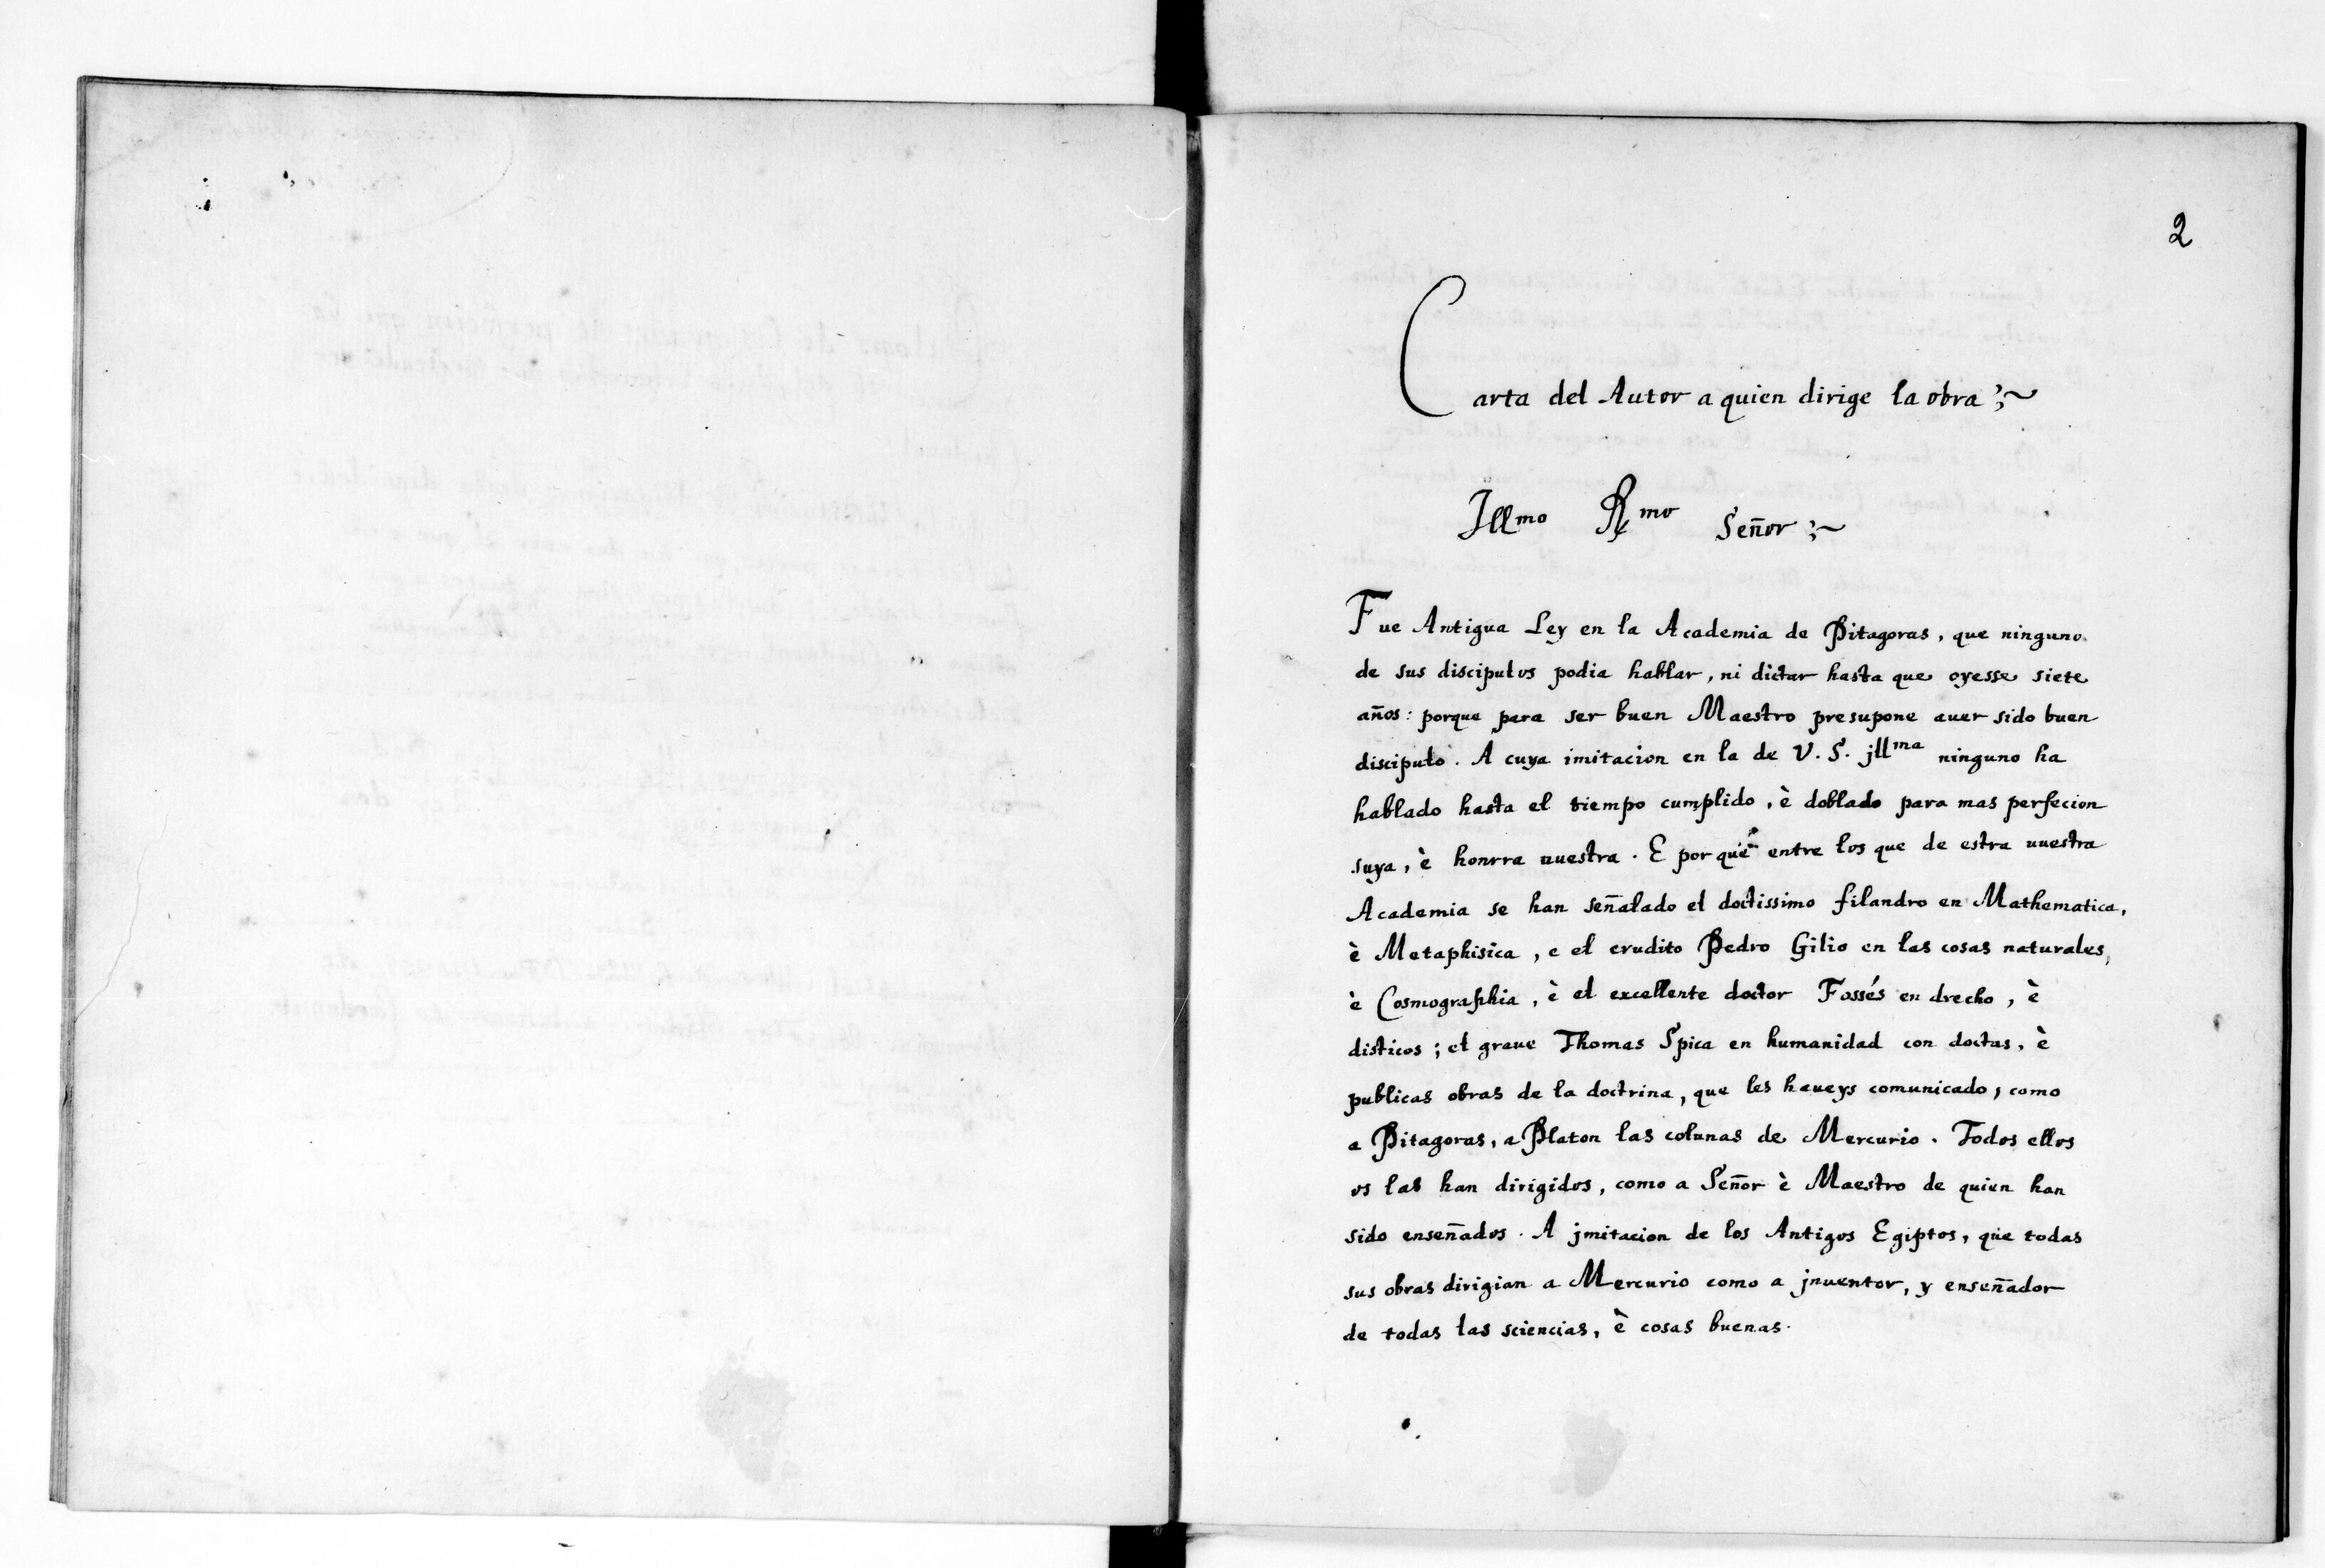 2
Carta del Autor a quien dirige la obra
Jllmo Rmo Señor
Fue Antigua Ley en la Academia de Pitagoras, que ninguno
de sus discipulos podia hablar, ni dictar hasta que oyesse siete
años: porque para ser buen Maestro presupone auer sido buen
discipulo. A cuya imitacion en la de V. S. jllma ninguno ha
hablado hasta el tiempo cumplido, è doblado para mas perfecion
suya, è honrra uuestra. E por que entre los que de estra uuestra
Academia se han señalado el doctissimo filandro en Mathematica,
è Metaphisica, e el erudito Pedro Gilio en las cosas naturales,
è Cosmographia, è el excellente doctor Fossés en drecho, è
disticos; el graue Thomas Spica en humanidad con doctas, è
publicas obras de la doctrina, que les haueys comunicado, como
a Pitagoras, a Platon las colunas de Mercurio. Todos ellos
os las han dirigidos, como a Señor è Maestro de quien han
sido enseñados. A jmitacion de los Antigos Egiptos, que todas
sus obras dirigian a Mercurio como a jnuentor, y enseñador
de todas las sciencias, è cosas buenas.